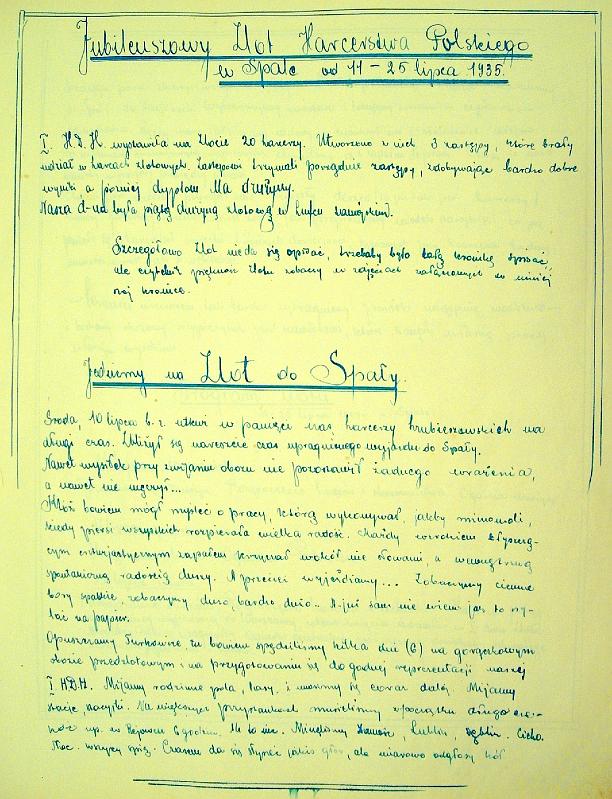 Jubileuszowy Zlot Harcerstwa Polskiego
w Spale od 11 - 25 lipca 1935.
I. H.D.H. wystawiła na Zlocie 20 harcerzy. Utworzono z nich 3 zastępy, które brały
udział w harcach zlotowych. Zastępowi trzymali porządnie zastępy, zdobywając bardzo dobre
wyniki, a później dyplom dla drużyny.
Nasza d-na była piątą drużyną zlotową w hufcu zamojskim.
Szczegółowo Zlot nie da się opisać, trzebaby było całą kronikę spisać,
ale czytelnik piękność Zlotu zobaczy w zdjęciach załączonych w niniej
szej kronice.
Jedziemy na Zlot do Spały.
Środa, 10 lipca b. r. utkwi w pamięci nas harcerzy hrubieszowskich na
długi czas. Zbliżył się nareszcie czas upragnionego wyjazdu do Spały.
Nawet wysiłek przy zwijaniu obozu nie pozostawił żadnego wrażenia,
a nawet nie męczył...
Któż bowiem mógł myśleć o pracy, którą wykonywał, jakby mimowoli,
kiedy piersi wszystkich rozpierała wielka radość. Każdy wzrokiem błyszczą-
cym entuzjastycznym zapałem krzyczał wokół nie słowami, a wewnętrzną
spontaniczną radością duszy. A przecież wyjeżdżamy... Zobaczymy ciemne
bory spalskie, zobaczymy dużo, bardzo dużo.. A już sam nie wiem jak to wy-
lać na papier.
Opuszczamy Turkowice, tu bowiem spędziliśmy kilka dni (6) na gorączkowym
obozie przedzlotowym i na przygotowaniu się do godnej reprezentacji naszej
I H.D.H. Mijamy rodzinne pola, lasy, i unosimy się coraz dalej. Mijamy
stacje naczyki. Na większych przystankach musieliśmy z początku długo cze-
kać np. w Rejowcu 6 godzin. Ale to nic. Minęliśmy Zamość, Lublin, Dęblin. Cicho.
Noc. Wszyscy śpią. Czasem da się słyszeć jakiś głos, ale miarowo odgłosy kół